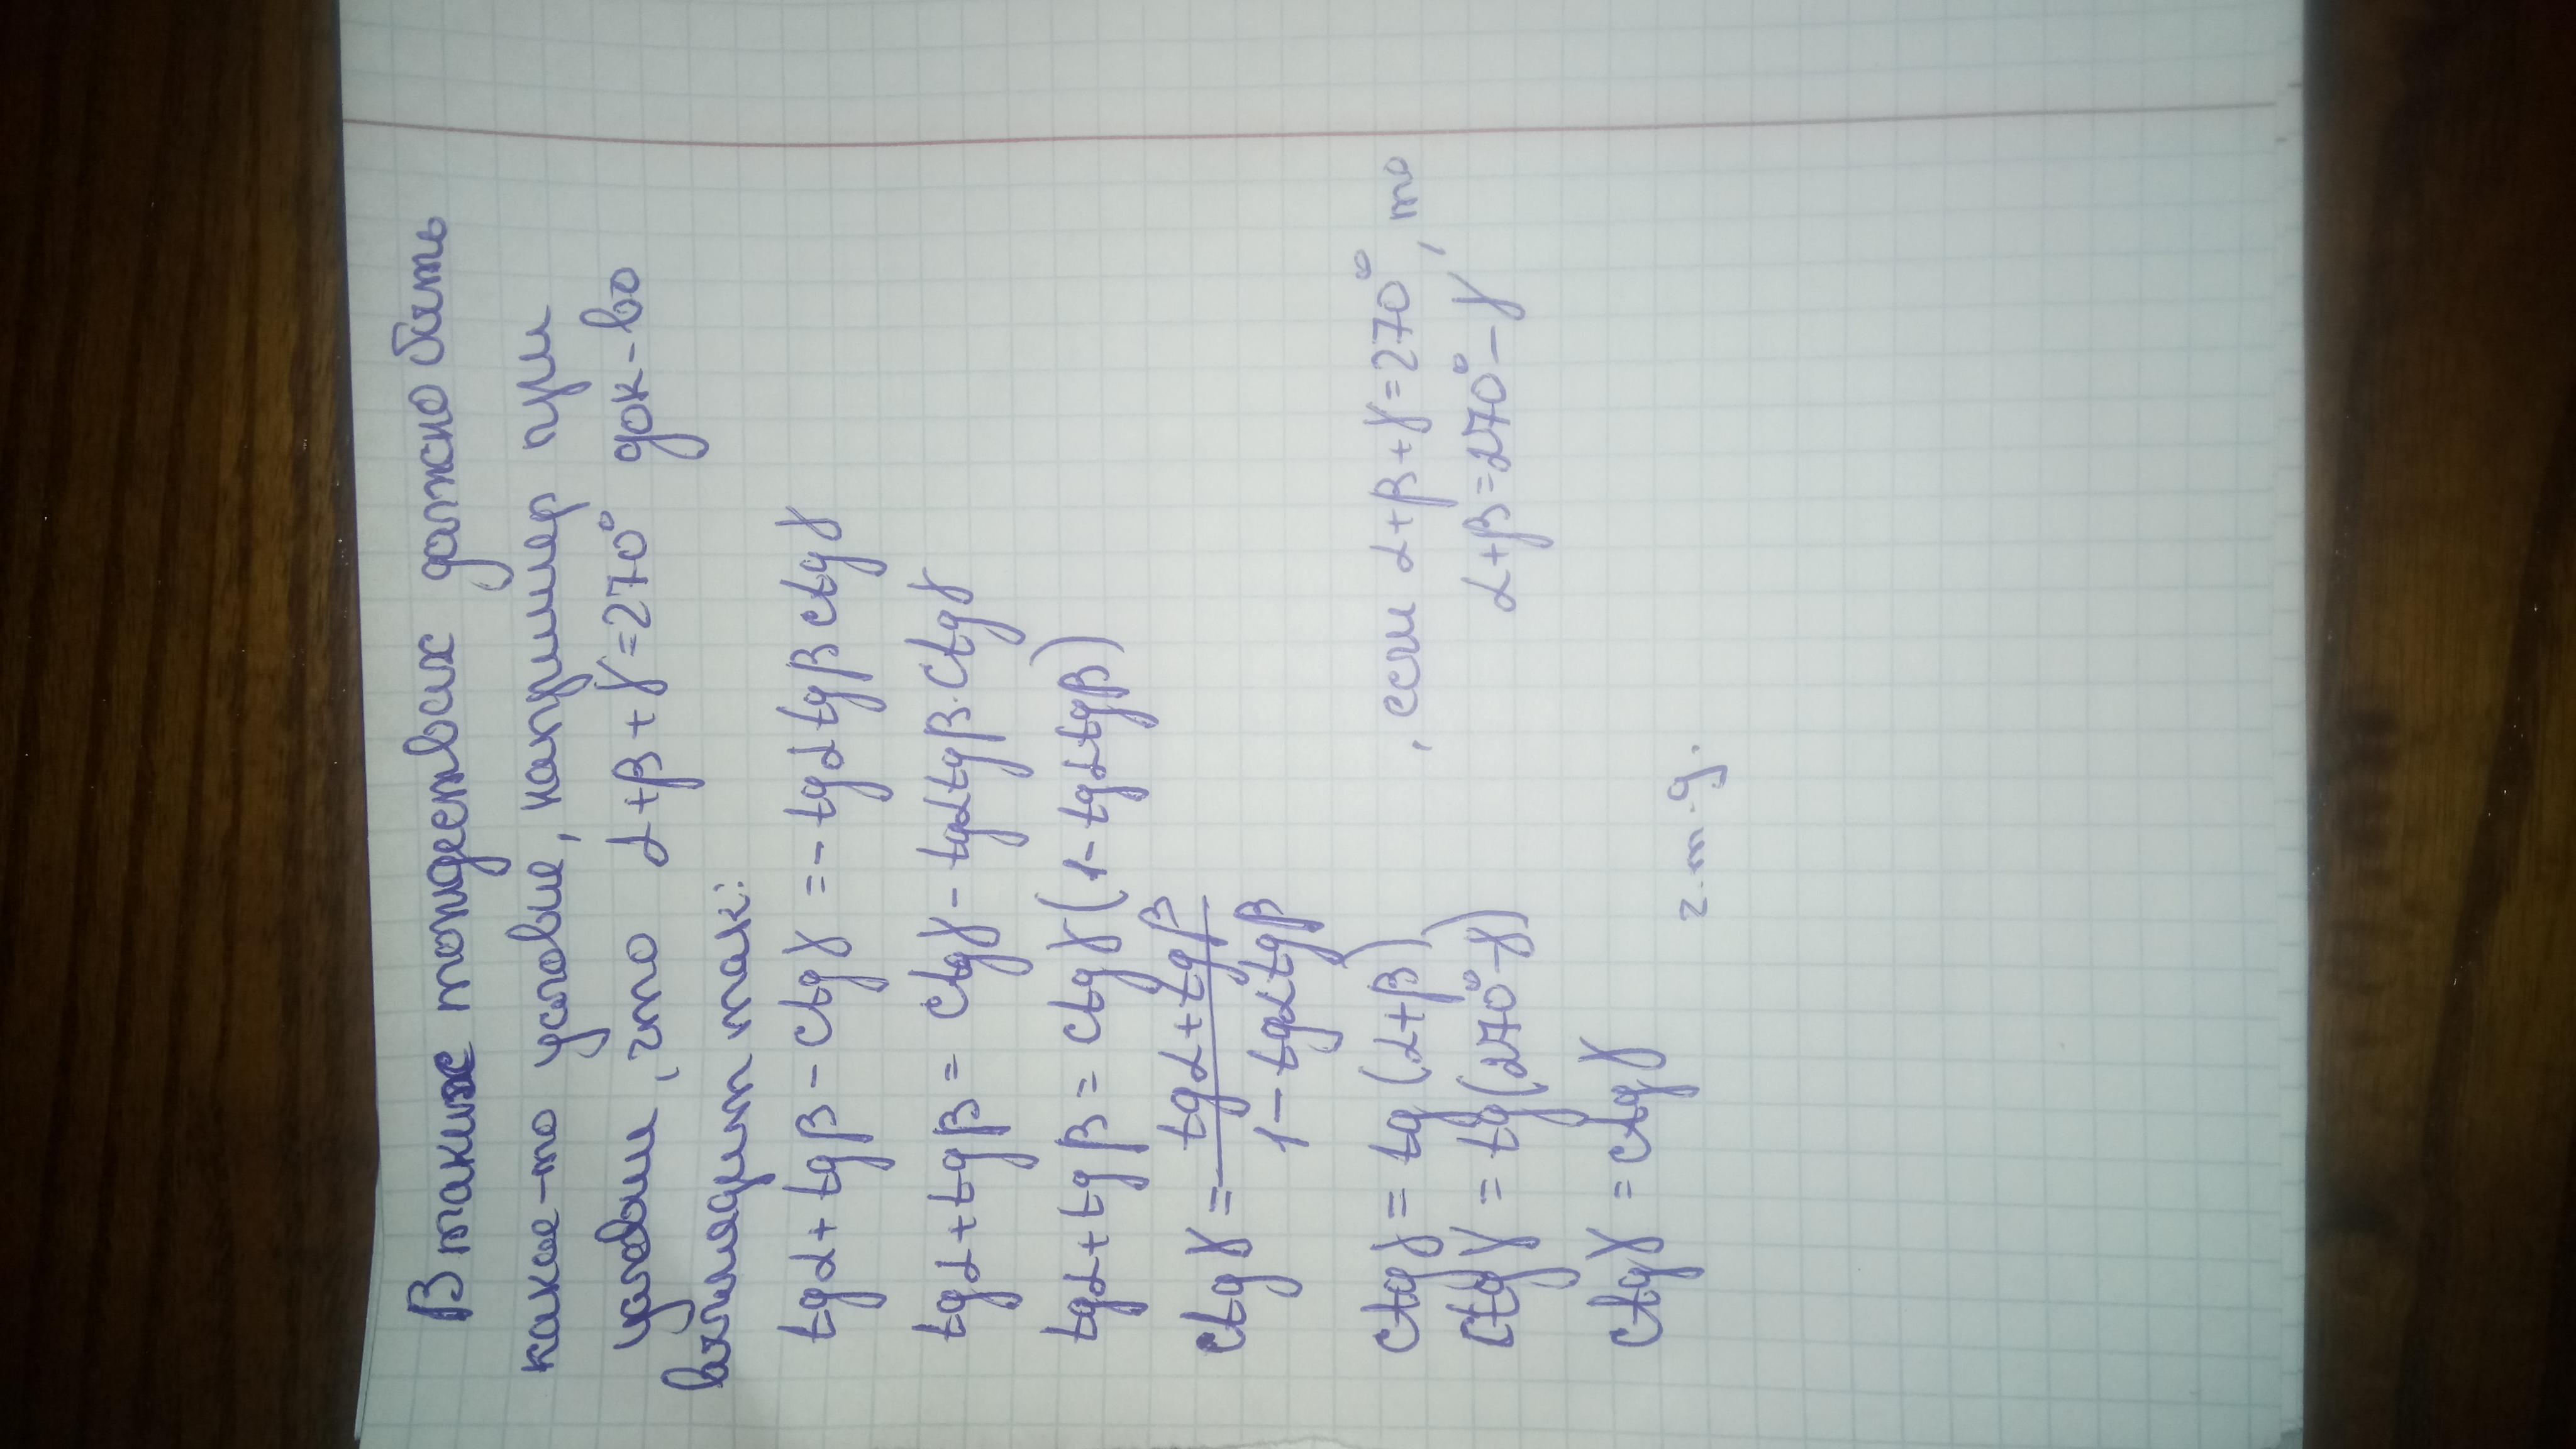 В таких тождествах должно быть
какое-то условие, например при
условии, что α+β+γ=270° док-во
выглядит так:
tgα+tgβ-ctgγ=-tgαtgβctgγ
tgα+tgβ=ctgγ-tgαtgβ·ctgγ
tgα+tgβ=ctgγ(1-tgαtgβ)
ctgγ=(tgα+tgβ)/(1-tgαtgβ)
ctgγ=tg(α+β), если α+β+γ=270°, то
ctgγ=tg(270°-γ) α+β=270°-γ
ctgγ=ctgγ
ч.т.д.